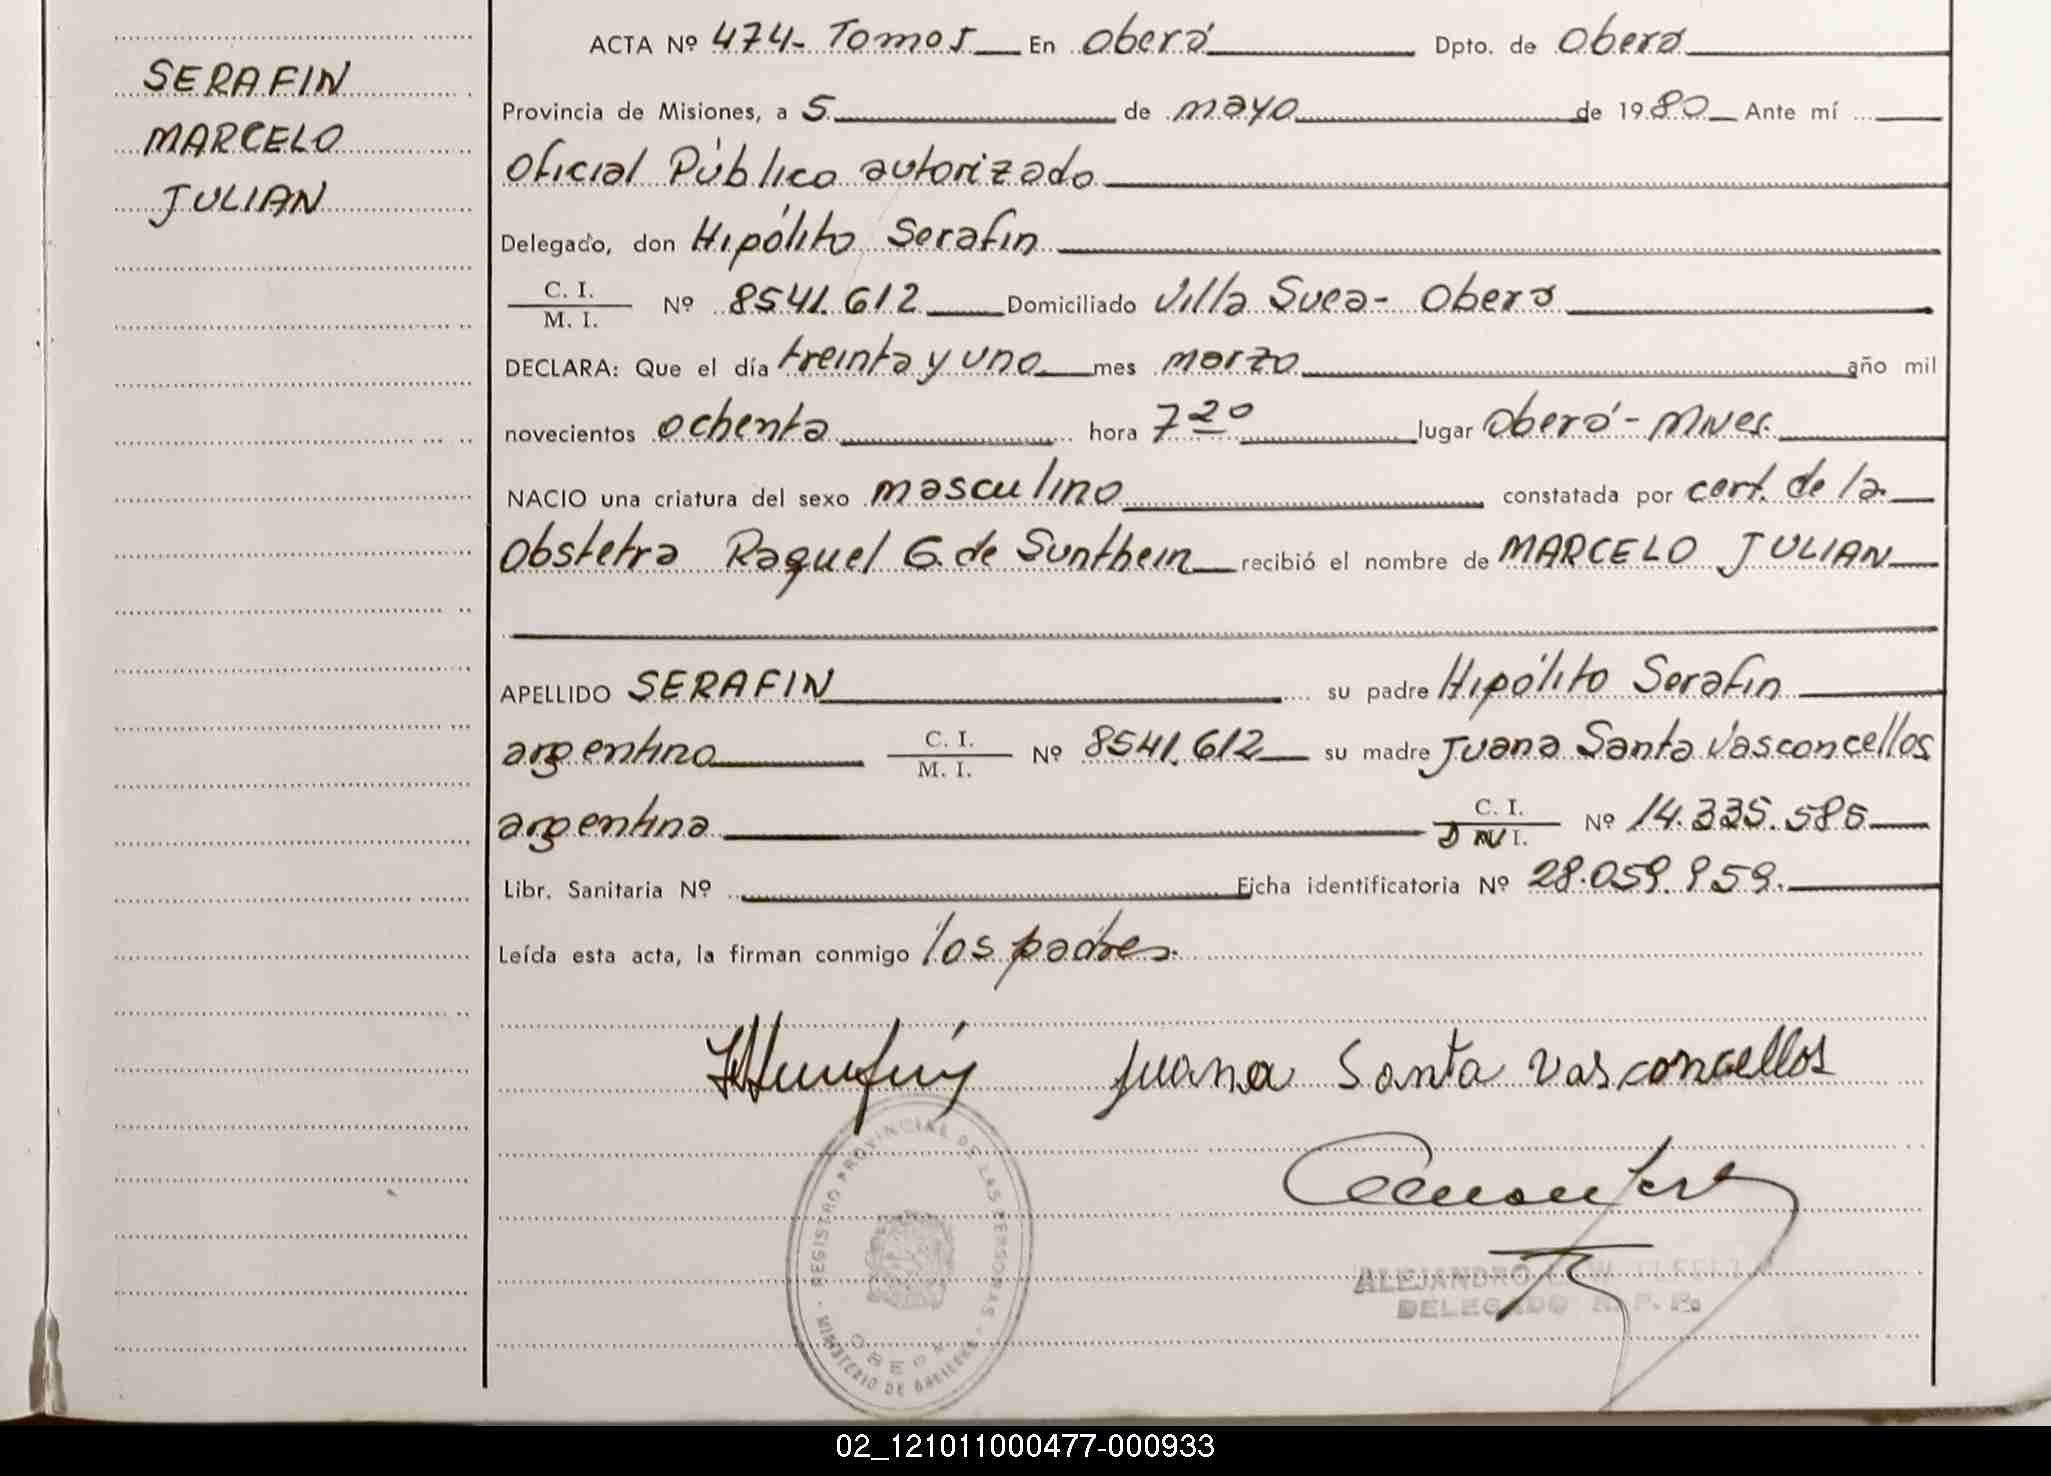 SERAFIN
MARCELO
JULIAN
ACTA Nº 474- Tomo I En Oberá Dpto. de Oberá
Provincia de Misiones, a 5 de mayo de 1980 Ante mí
Oficial Público autorizado
Delegado, don Hipólito Serafin
C. I. / M. I. Nº 8541.612 Domiciliado Villa Sueca - Oberá
DECLARA: Que el día treinta y uno mes marzo año mil
novecientos ochenta hora 7 20 lugar Oberá - Mnes.
NACIO una criatura del sexo masculino constatada por cert. de la
Obstetra Raquel G. de Sunthein recibió el nombre de MARCELO JULIAN
APELLIDO SERAFIN su padre Hipólito Serafin
argentino C. I. / M. I. Nº 8541.612 su madre Juana Santa Vasconcellos
argentina C. I. / DNI. Nº 14.335.585
Libr. Sanitaria Nº Ficha identificatoria Nº 28.059.959.
Leída esta acta, la firman conmigo los padres.
Juana Santa Vasconcellos
REGISTRO PROVINCIAL DE LAS PERSONAS
MINISTERIO DE GOBIERNO
OBERA
ALEJANDRO
DELEGADO R. P. P.
02_121011000477-000933